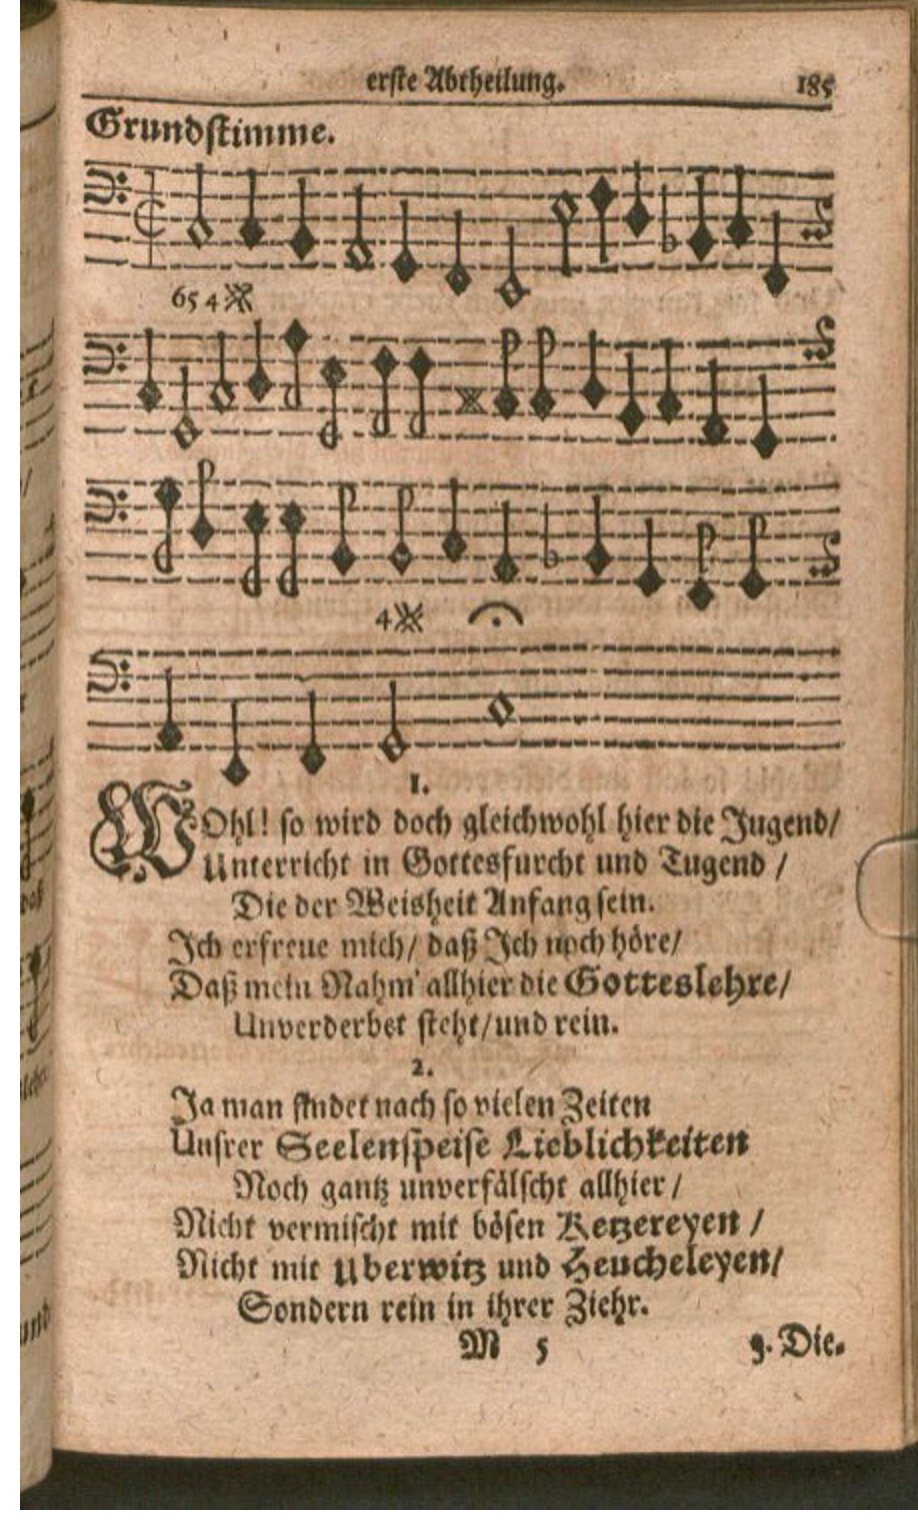 erste Abtheilung. 185
Grundstimme.
6 5 4
4
1.
WOhl! so wird doch gleichwohl hier die Jugend/
Unterricht in Gottesfurcht und Tugend /
Die der Weisheit Anfang sein.
Ich erfreue mich/ daß Ich noch höre/
Daß mein Nahm' allhier die Gotteslehre/
Unverderbet steht/und rein.
2.
Ja man findet nach so vielen Zeiten
Unsrer Seelenspeise Lieblichkeiten
Noch gantz unverfälscht allhier /
Nicht vermischt mit bösen Ketzereyen /
Nicht mit Uberwitz und Heucheleyen/
Sondern rein in ihrer Ziehr.
M 5 3. Die-